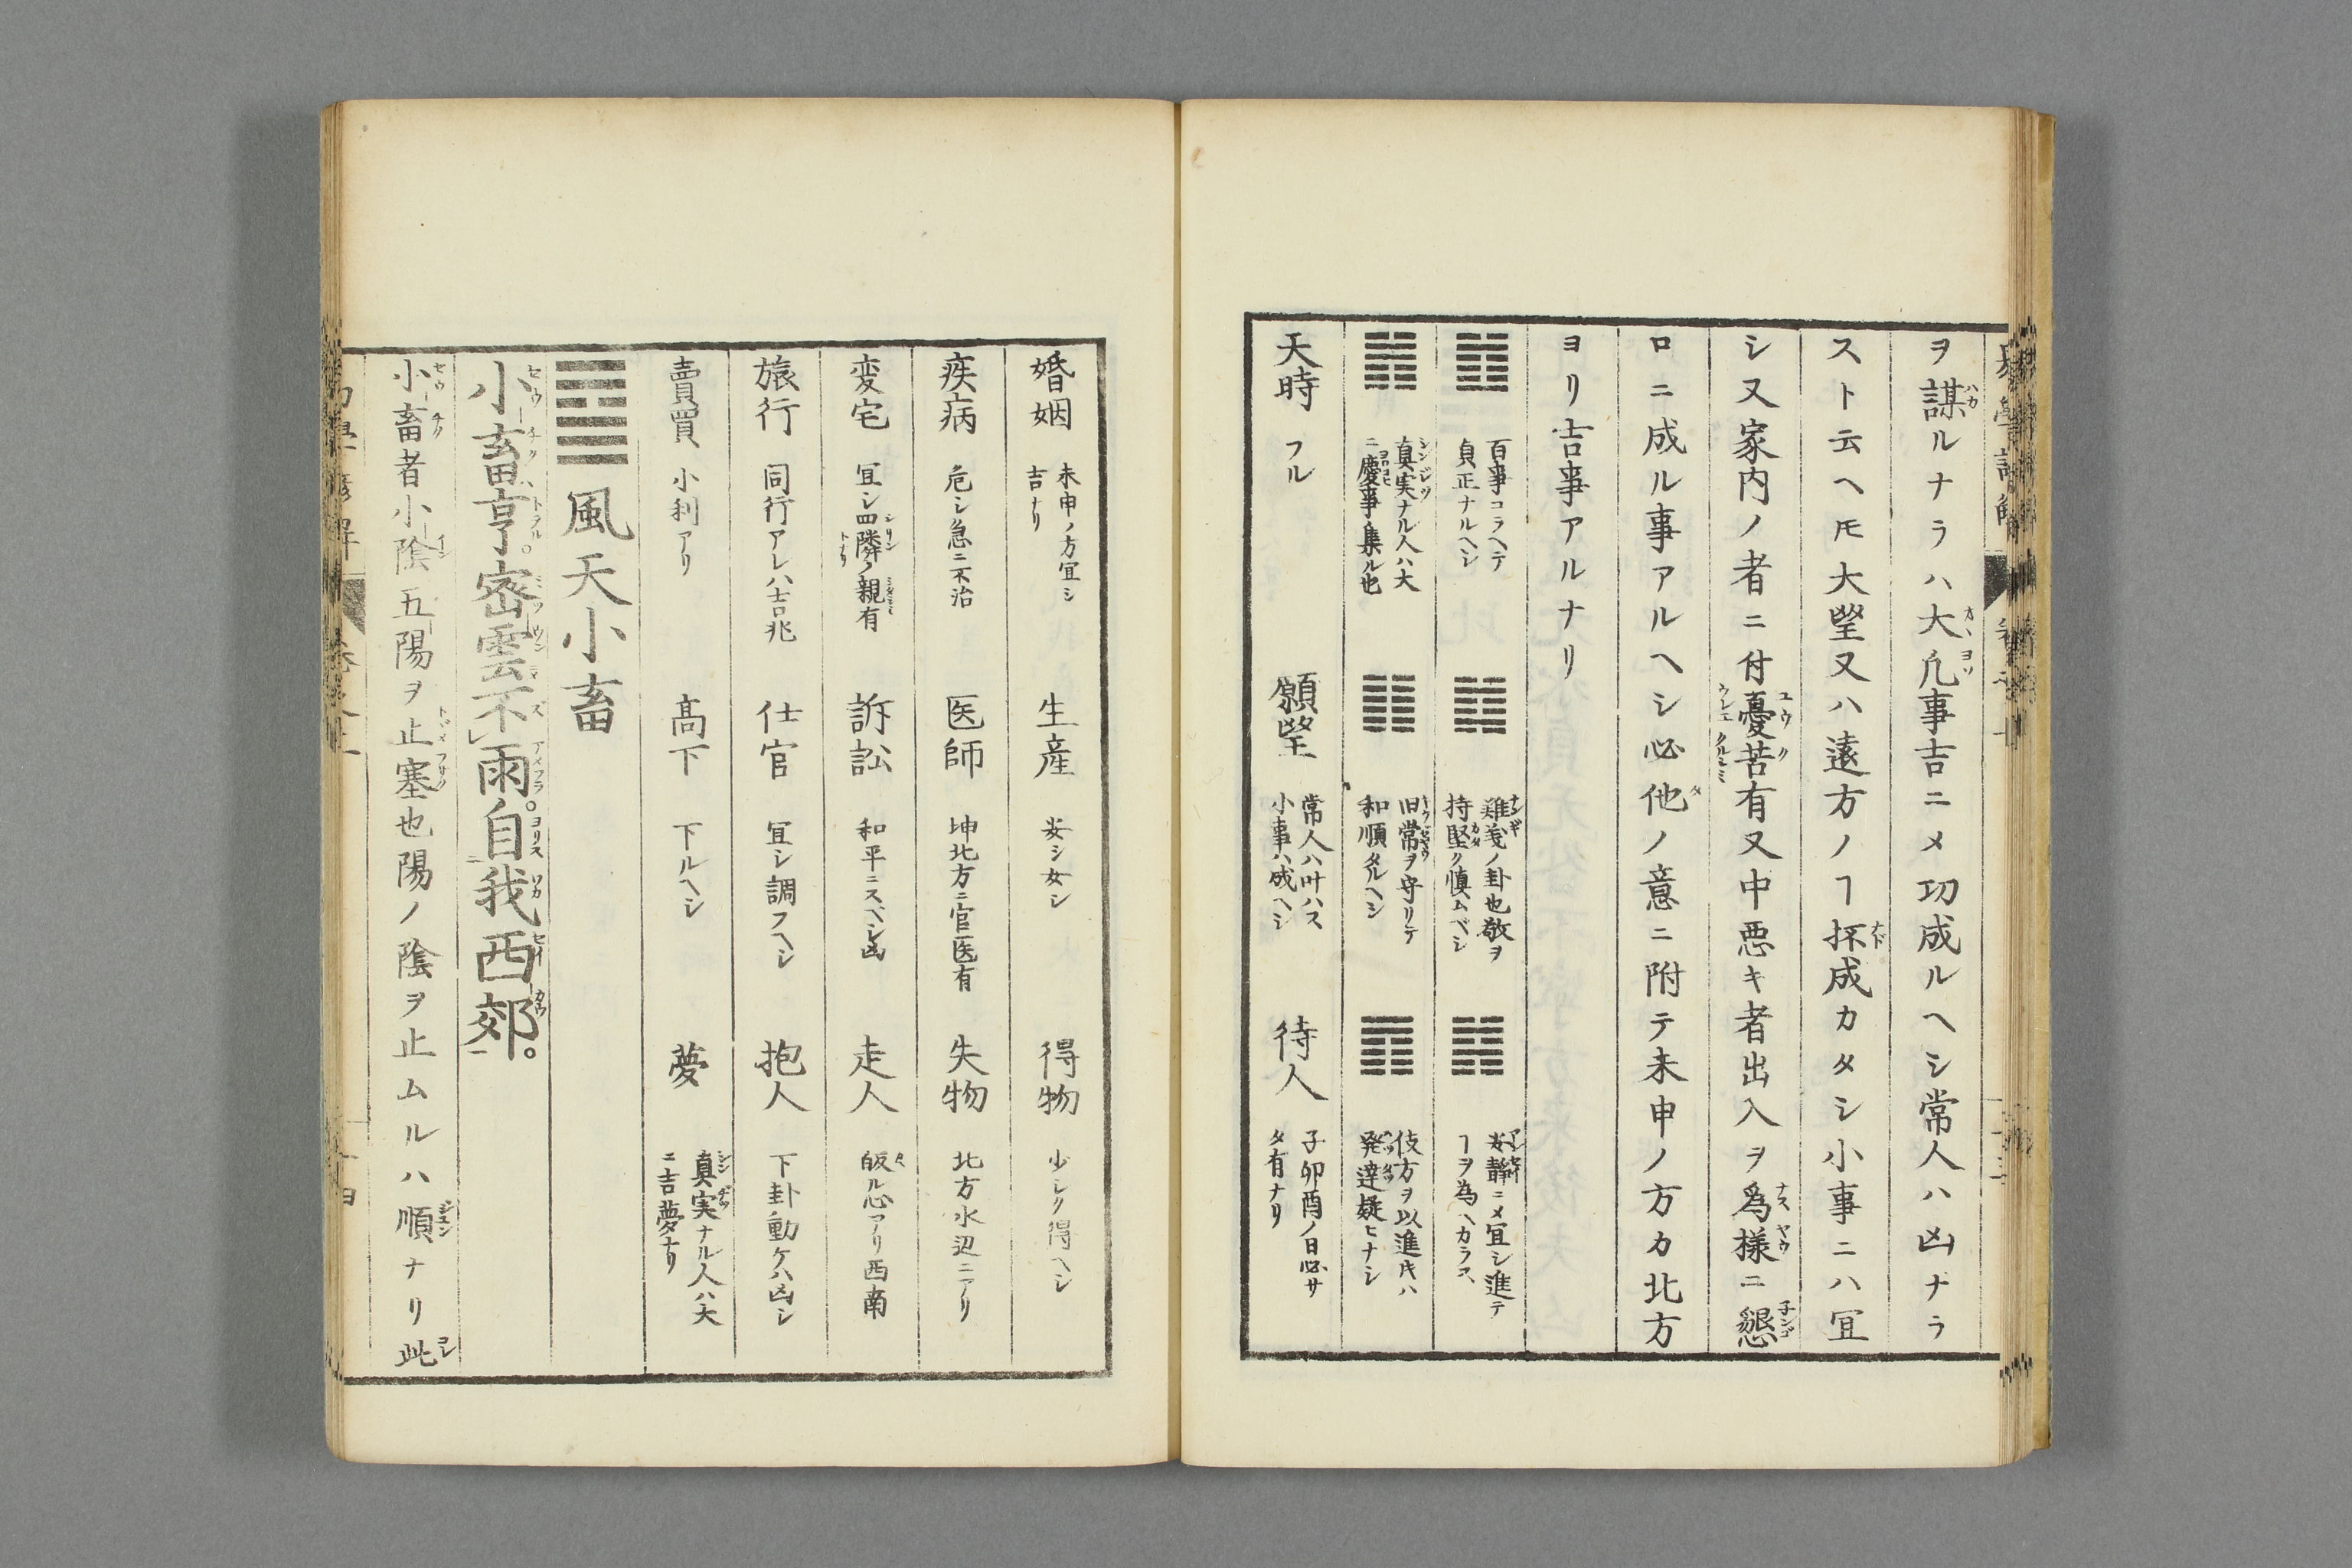 ヲ謀ルナラハ大凢事吉ニメ功成ルヘシ常人ハ凶ナラ
スト云ヘ𪜈大望又ハ遠方ノヿ抔成カタシ小事ニハ冝
シ又家内ノ者ニ付憂苦有又中悪キ者出入ヲ爲様ニ懇
ロニ成ル事アルヘシ必他ノ意ニ附テ未申ノ方カ北方
ヨリ吉事アルナリ
百事コラヘテ
貞正ナルヘシ
難義ノ卦也敬ヲ
持堅ク慎ムベシ
安静ニメ冝シ進テ
ヿヲ為ヘカラス
真実ナル人ハ大
ニ慶事集ル也
旧常ヲ守リテ
和順タルヘシ
伎方ヲ以進𪜈ハ
発達疑ヒナシ
天時 フル
願望 常人ハ叶ハス
小事ハ成ヘシ
待人 子卯酉ノ日必サ
タ有ナリ
婚姻 未申ノ方冝シ
吉ナリ
生産 安シ女シ
得物 少シク得ヘシ
疾病 危シ急ニ不治
医師 坤北方ニ官医有
失物 北方水辺ニアリ
変宅 冝シ四隣ノ親有
訴訟 和平ニスベシ凶
走人 皈ル心アリ西南
旅行 同行アレハ吉兆
仕官 冝シ調フヘシ
抱人 下卦動ケハ凶シ
賣買 小利アリ
高下 下ルヘシ
夢 真実ナル人ハ大
ニ吉夢ナリ
風天小畜
小畜亨。密雲不雨。自我西郊。
小畜者小陰五陽ヲ止塞也陽ノ陰ヲ止ムルハ順ナリ此